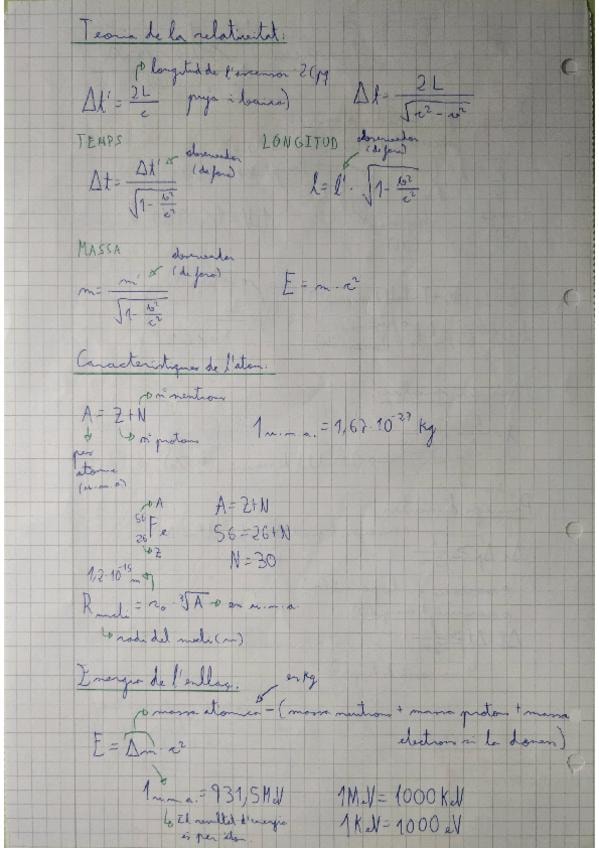 Teoria de la relativitat:
longitud de l'ascensor 2 (pq
Δt' = 2L/c puja i baixa)
Δt = 2L/√(c² - v²)
TEMPS
observador (de fora)
Δt = Δt'/√(1 - v²/c²)
LONGITUD
observador (de fora)
l = l' · √(1 - v²/c²)
MASSA
observador (de fora)
m = m'/√(1 - v²/c²)
E = m · c²
Característiques de l'àtom.
nº neutrons
A = Z+N
nº protons
pes
atòmic
(u.m.a)
1 u.m.a. = 1,67·10⁻²⁷ kg
A
⁵⁶₂₆Fe
Z
A = Z+N
56 = 26+N
N = 30
1,2·10⁻¹⁵ m
R nucli = r₀ · ³√A → en u.m.a.
radi del nucli (m)
Energia de l'enllaç.
en kg
massa atòmica - (massa neutrons + massa protons + massa
electrons si la donen)
E = Δm · c²
1 u.m.a. = 931,5 MeV
El resultat d'energia
és per àtom.
1 MeV = 1000 KeV
1 KeV = 1000 eV